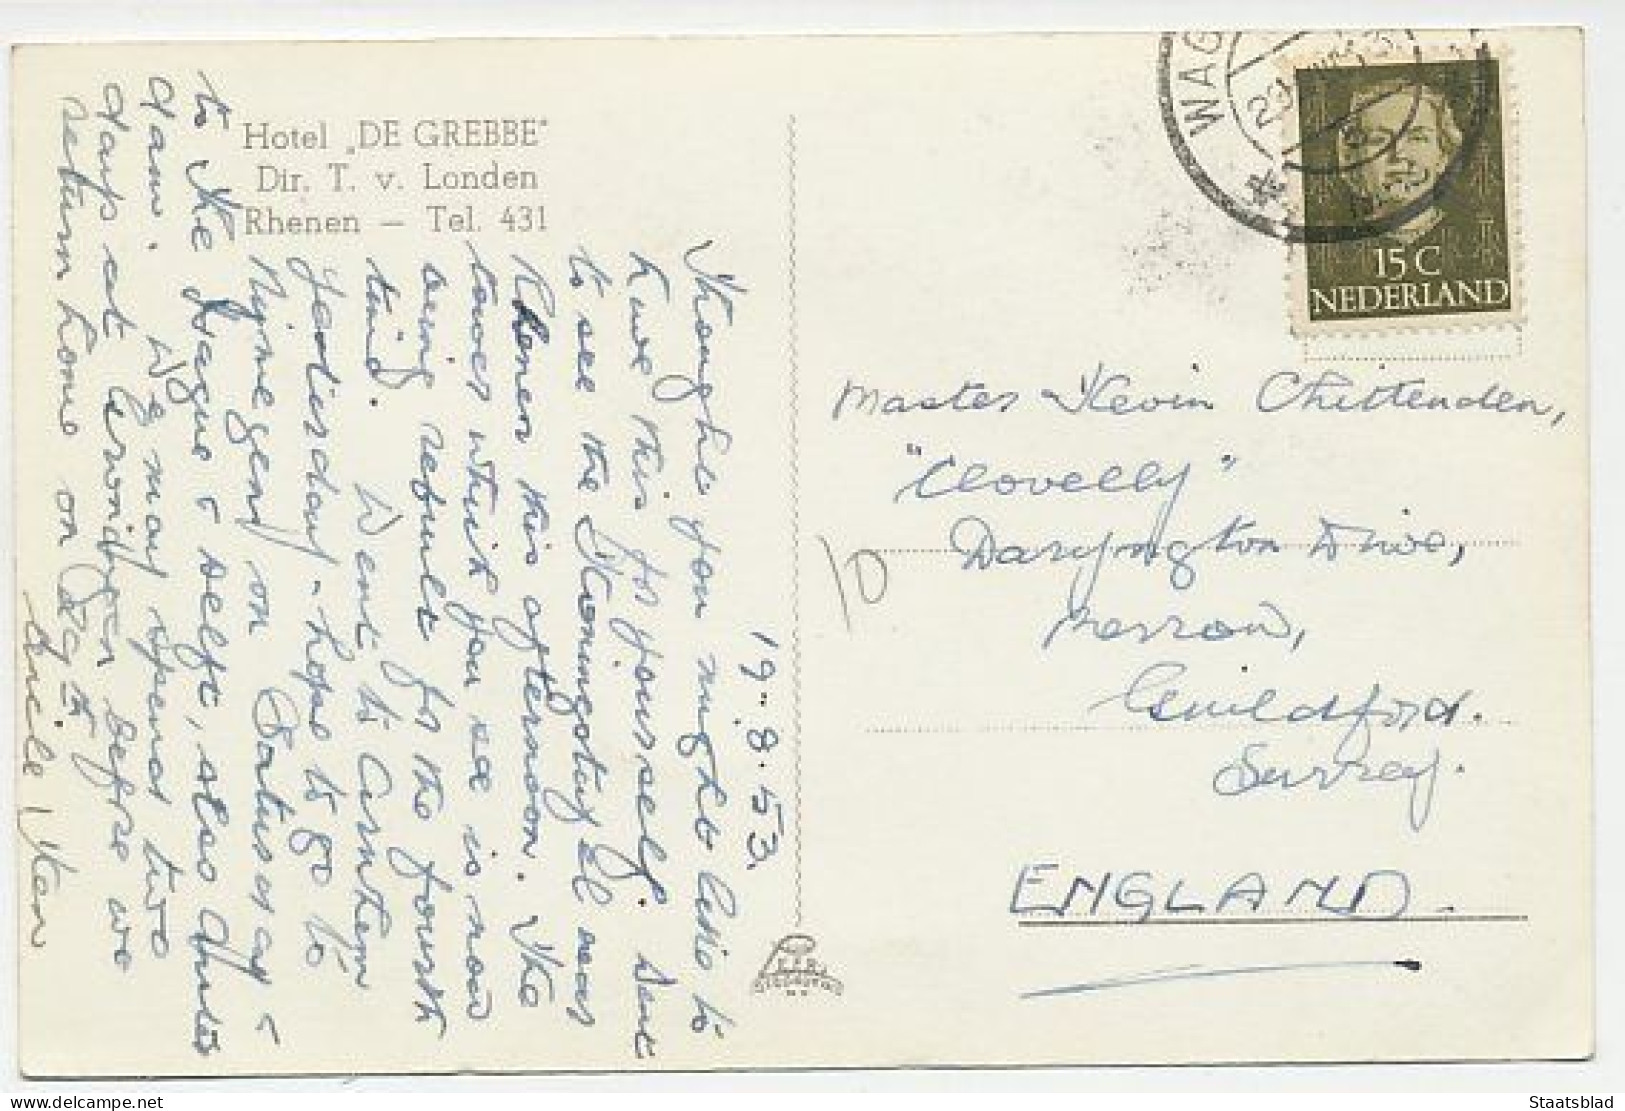 Hotel „DE GREBBE"
Dir. T. v. Londen
Rhenen — Tel. 431
19.8.53
Thought you might like to
have this for yourself. Went
to see the
Rhenen this afternoon. The
tower which you see is now
being rebuilt for the fourth
time. Went to Arnhem
yesterday - hope to go to
Nijmegen on Saturday &
to the Hague & Delft, also Amster
dam. We may spend two
days at before we
return home on 29th
Uncle Ken
WAG
29
15 C
NEDERLAND
Master Kevin Chittenden,
"Clovelly"
Daryngton Drive,
Merrow,
Guildford.
Surrey.
ENGLAND.
10
Staatsblad